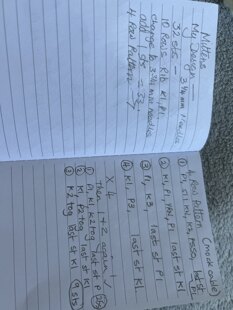 Mittens
My Design 3¼mm Needles
32 sts —
10 Rows Rib K1, P1.
change to 3¾ mm needles
add 1 st = 33.
4 Row Pattern →
4 Row Pattern (mock cable)
① P1, sl 1, K2, psso, last st P1
② K1, P1, YRN, P1 last st K1
③ P1, K3, last st P1
④ K1, P3, last st K1.
x 4
then 1+2 again!
① P1, K1, K2tog last st P
② K1, P2tog last st K1
③ K2tog last st K1 9 sts